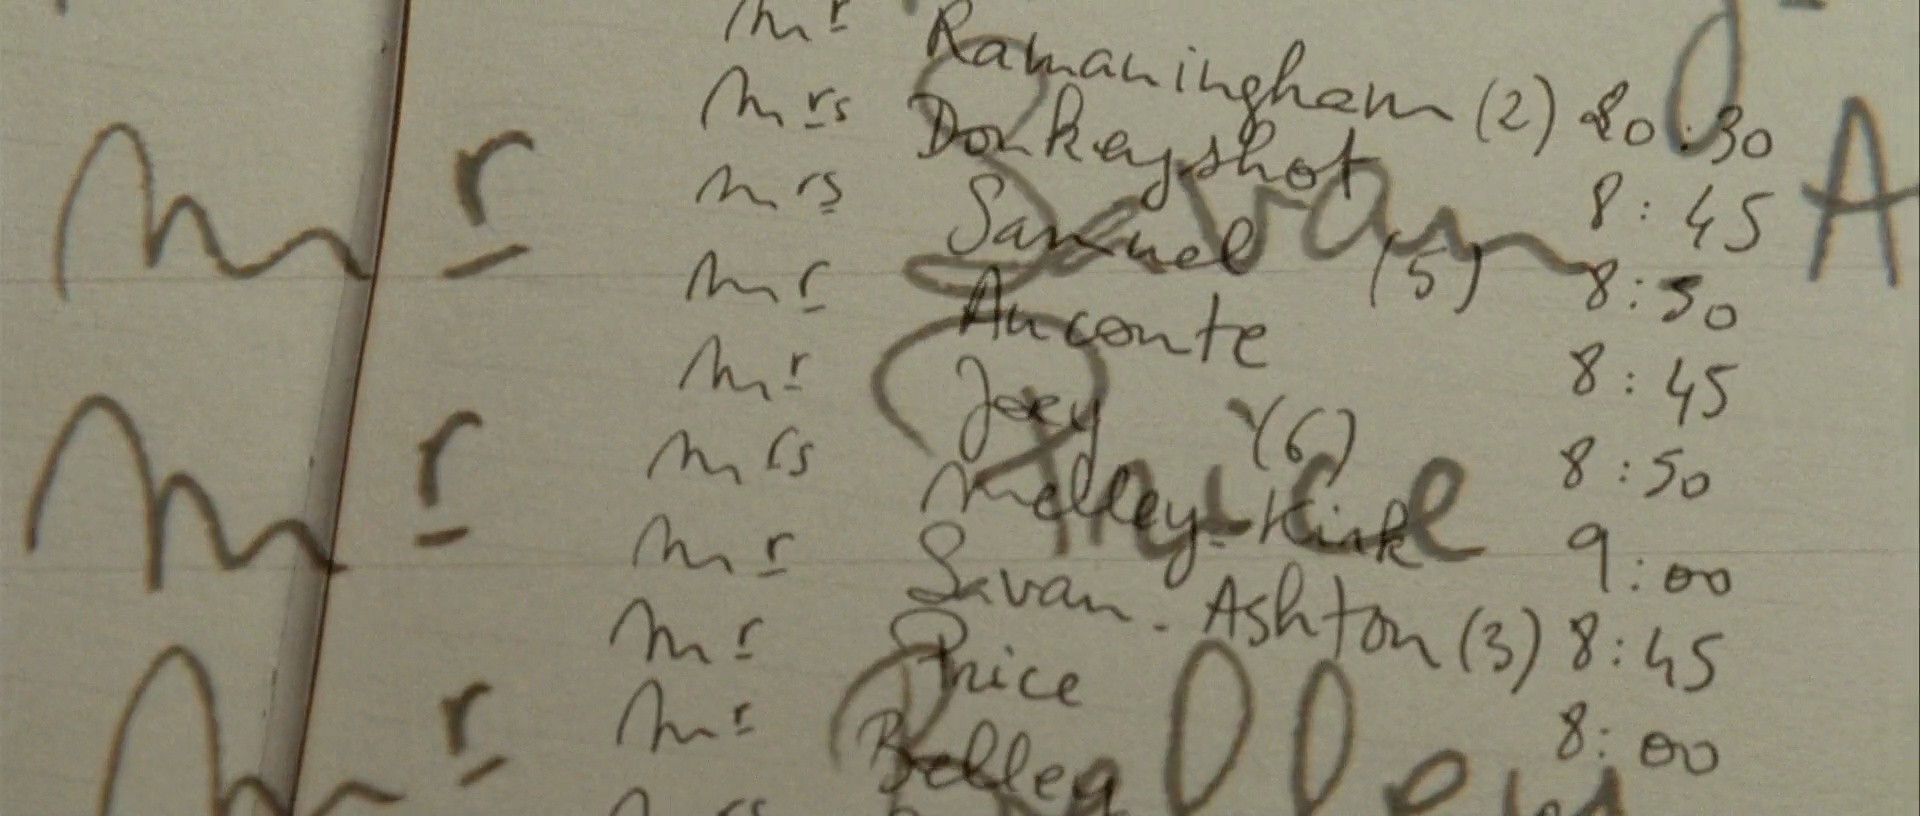 Mr Ramaningham (2) 8:30
Mrs Donkeyshot 8:45
Mrs Samuel (5) 8:50
Mr Auconte 8:45
Mr Joey (6) 8:50
Mrs Melley-Kink 9:00
Mr Savan-Ashton (3) 8:45
Mr Price 8:00
Mr Belley
Mr Savan A
Mr Price
Mr Belley